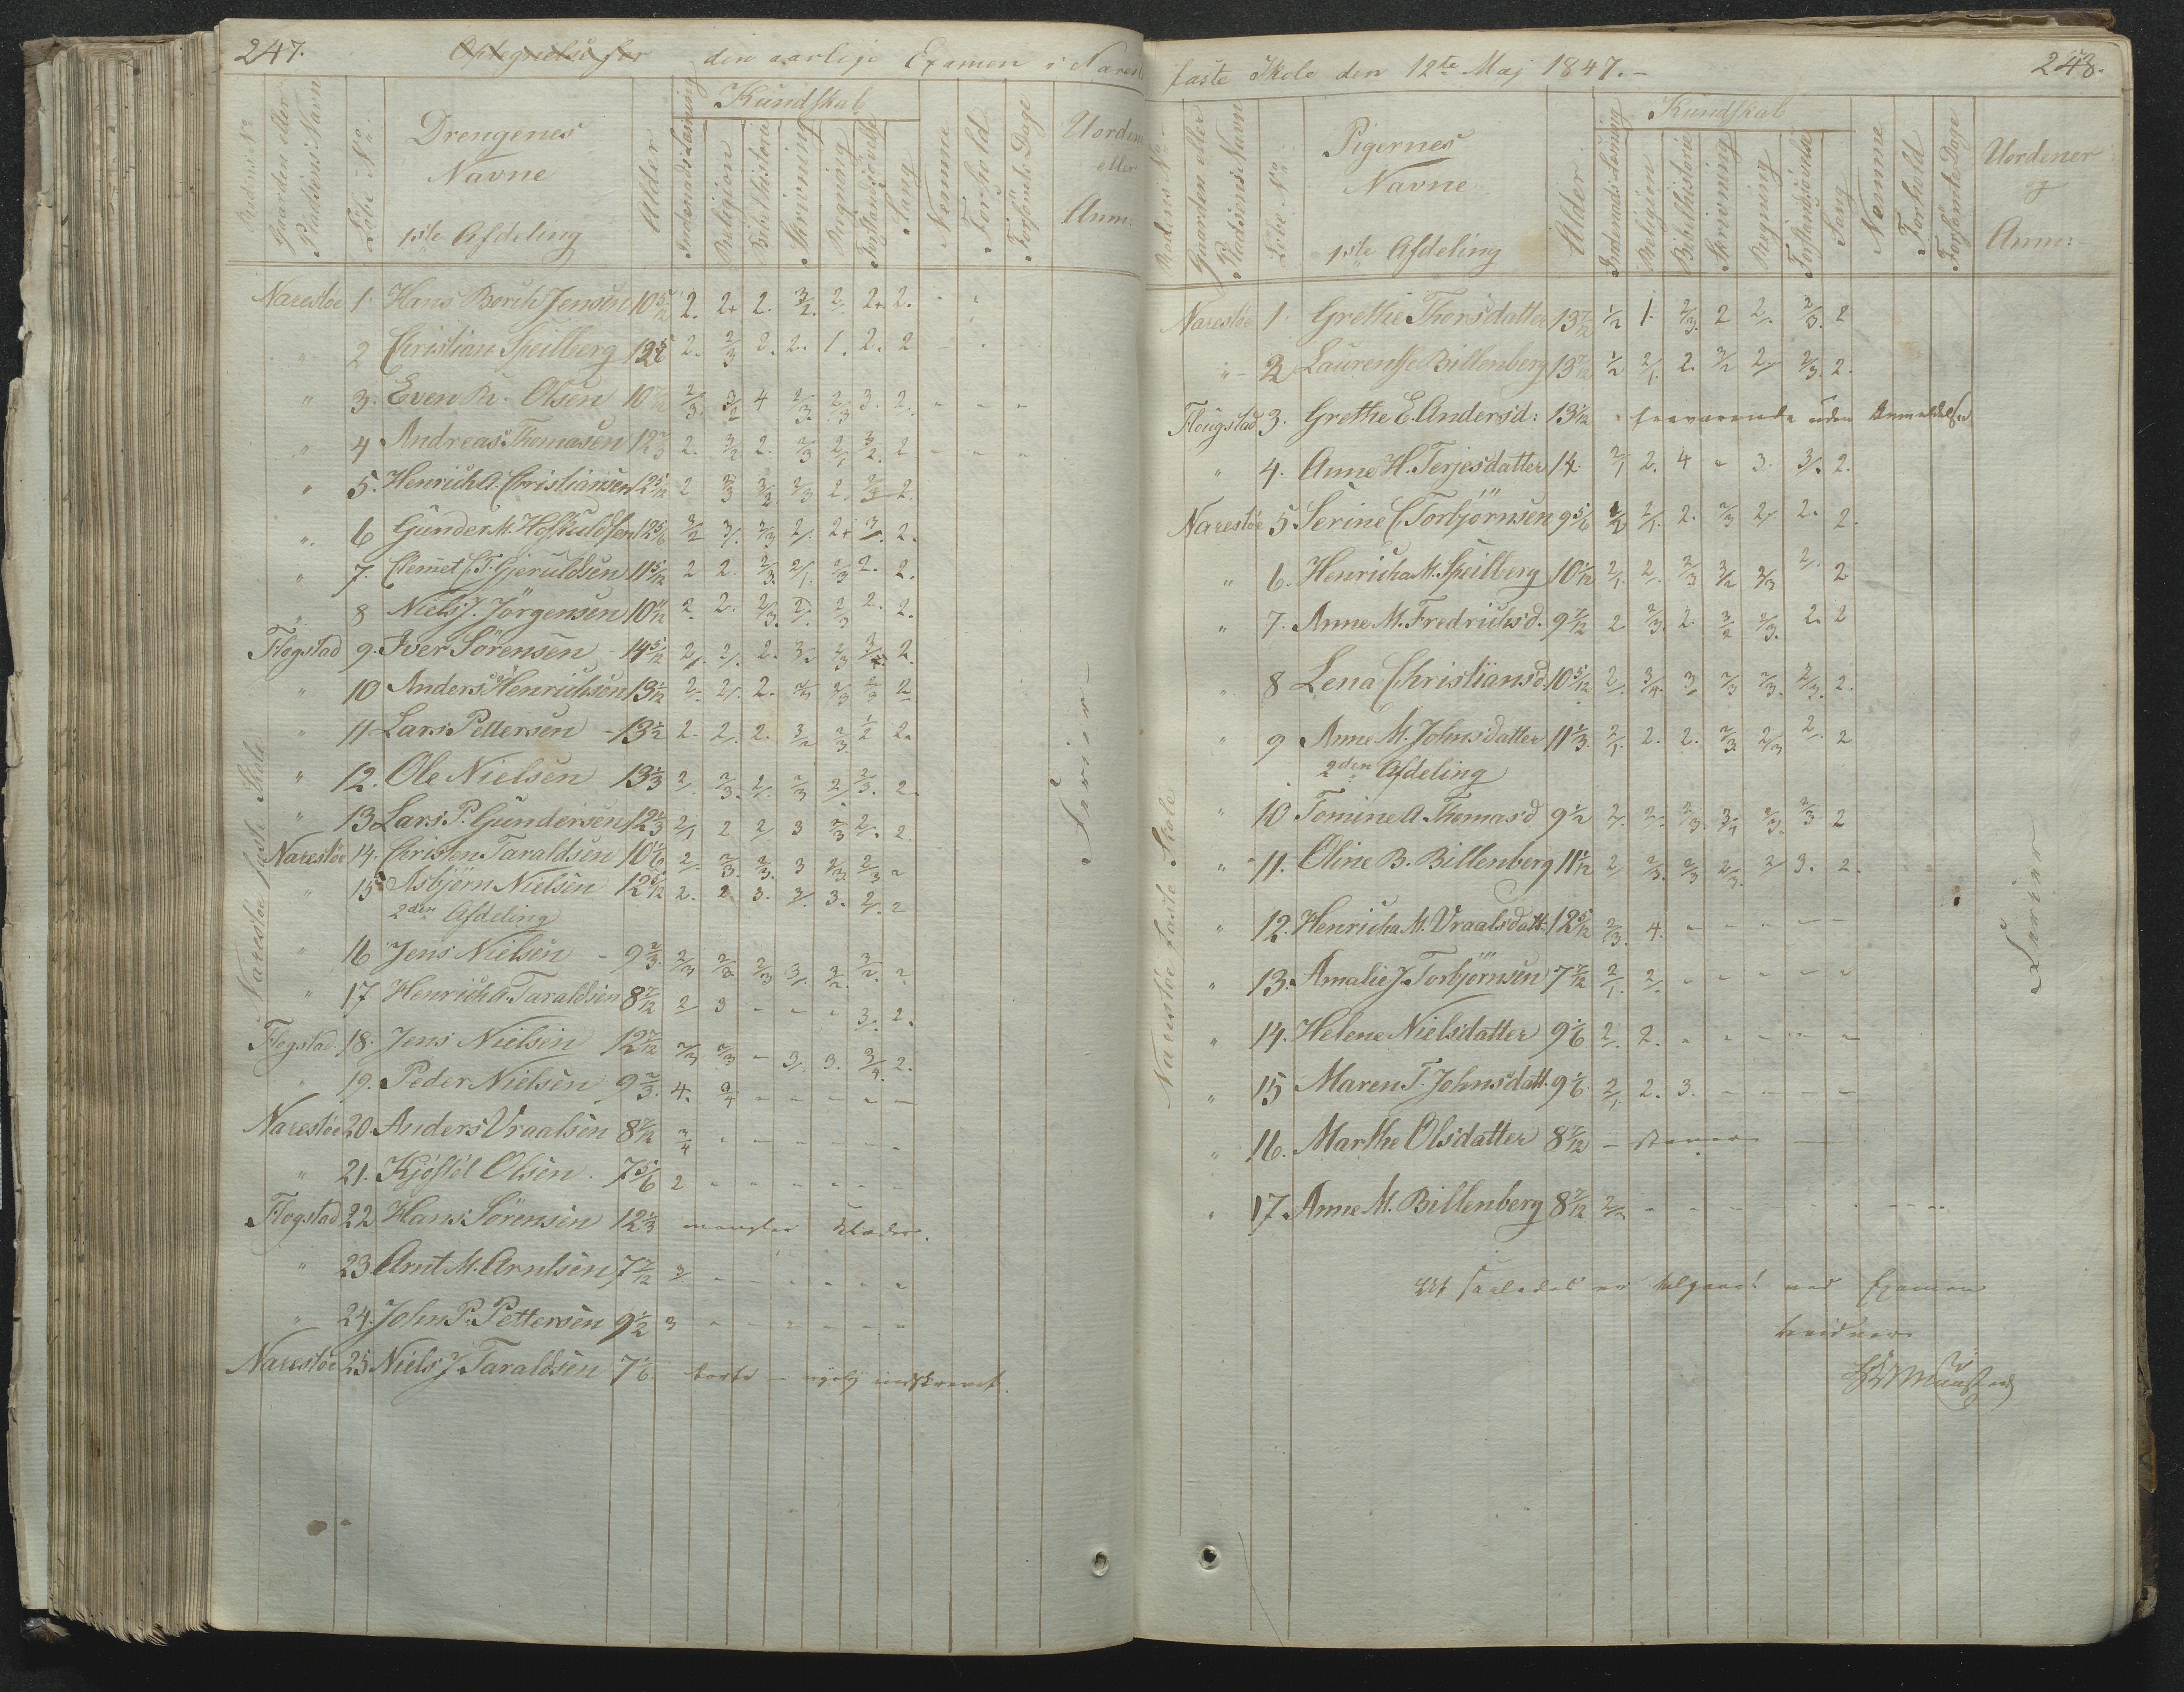 247.
Optegnelse for den aarlige Examen i Narestø
Rodens No
Gaarden eller Pladsens Navn
Løbe No
Drengenes Navne
1ste Afdeling
Alder
Kundskab
Indenads Læsning
Religion
Bibelhistorie
Skrivning
Regning
Forstandsøvelse
Sang
Nemme
Forhold
Forsømte Dage
Uordener eller Anm:
Narestøe faste Skole
Narestøe 1 Hans Borch Jensen 10 5/12 2. 2+ 2. 3/2. 2/. 2+ 2.
" 2 Christian Speilberg 2. 2/3 2. 2. 1. 2. 2
" 3. Even R. Olsen 2/3 3/2 4 2/3. 2/3 3. 2.
" 4 Andreas Thomasen 12 2/3 2. 3/2 2. 2/3 2/1 3/2. 2
" 5. Henrich A. Christiansen 12 5/12 2 2/3 3/2. 2/3 2. 2/3 2.
" 6 Gunder M. Hofkuldsen 12 5/6 3/2 3/. 2/3 2/. 2+ 3/. 2.
" 7. Clemet C. T. Gjeruldsen 11 5/12 2 2. 2/3. 2/1. 2/3 2. 2.
" 8 Niels J. Jørgensen 10 11/12 2. 2. 2/3. 2/. 2/3 2. 2.
Flogstad 9. Iver Sørensen - 14 5/12 2/. 2/. 2. 3/2 2/3 2.
" 10 Anders Henrichsen 13 1/12 2. 2/. 2. 2/3 2/3 2/3 2
" 11 Lars Pettersen - 13 1/2 2. 2/. 2. 3/2 2/3. 1/2 2.
" 12. Ole Nielsen 13 1/3 2/. 2/3. 2/. 2/3 2/. 2/3. 2.
" 13 Lars P. Gundersen 12 1/3 2/1 2 2/ 3 2/3 2/. 2.
Narestøe 14. Christen Taraldsen 10 1/6 2/. 2/3. 2/3. 3 2/3. 2/3 2
" 15 Asbjørn Nielsen 12 5/12 2. 2 3. 3/. 3. 2/. 2
2den Afdeling
" 16 Jens Nielsen - 9 2/3. 2/3 2/3 2/3 3/. 3/2. 3/2. 2
" 17 Henrich A. Taraldsen 8 7/12 2/ 3 - - - 3/. 2.
Flogstad. 18. Jens Nielsen 12 7/12 2/3 2/3 - 3/. 3. 3/4. 2.
" 19. Peder Nielsen 9 2/3. 4. 3/4 - - - - -
Narestøe 20. Anders Vraalsen 8 7/12 3/4 - - - - - -
" 21. Kjøstel Olsen. 7 5/6 2 - - - - - -
Flogstad 22 Hans Sørensen 12 1/3 mangler Klæder.
" 23 Arnt M. Arntsen 7 7/12 3/. - - - - - -
" 24. John P. Pettersen 9 1/2 3 - - - - - -
Narestøe 25 Niels J. Taraldsen 7 1/6 borte - nylig indskrevet.
faste Skole den 12te Maj 1847. -
248.
Rodens No
Gaarden eller Pladsens Navn
Løbe No
Pigernes Navne
1ste Afdeling
Alder
Kundskab
Indenads Læsning
Religion
Bibelhistorie
Skrivning
Regning
Forstandsøvelse
Sang
Nemme
Forhold
Forsømte Dage
Uordener og Anm:
Narestøe faste Skole
Narestøe 1 Grethe Thorsdatter 13 7/12 1/2 1. 2/3. 2 2/. 2/3. 2
" - 2 Laurense Billenberg 13 7/12 1/2 2/1. 2. 3/2 2/ 2/3. 2.
Flougstad 3. Grethe E. Andersd: 13 1/12 fraværende uden Anmeldelse
" 4. Anne H. Terjesdatter 14 2/1 2. 4 " 3. 3/. 2.
Narestøe 5. Serine C. Torbjørnsen 9 5/6 2/1. 2. 2/3 2/. 2. 2.
" 6. Henricha M. Speilberg 10 1/12 2/1. 2/. 2/3 3/2 2/3 2/. 2
" 7. Anne M. Fredrichsd. 9 7/12 2. 2/3. 2. 3/2 2/3. 2. 2
" 8 Lena Christiansd. 10 5/12 2/. 3/4. 3/ 2/3 2/3. 2/3. 2.
" 9 Anne M. Johnsdatter 11 1/3. 2/1. 2. 2. 2/3. 2/3 2/. 2
2den Afdeling
" 10 Tomine A. Thomasd 9 1/2 2/. 2/. 2/3. 3/4 2/3. 2/3 2
" 11. Oline B. Billenberg 11 1/12 2/ 2/3. 2/3 2/3. 2/ 3. 2.
" 12. Henricha M. Vraalsdatt. 12 5/12 2/3. 4. - - - - -
" 13. Amalie J. Torbjørnsen 7 7/12 2/1. 2/. - - - - -
" 14. Helene Nielsdatter 9 1/6 2/. 2. - - - - -
" 15 Maren T. Johnsdatt. 9 1/6. 2/1. 2. 3. - - - -
" 16. Marthe Olsdatter 8 7/12 - staver -
" 17. Anne M. Billenberg 8 7/12 - - - - - -
At saaledes er tilgaaet ved Examen
bevidner